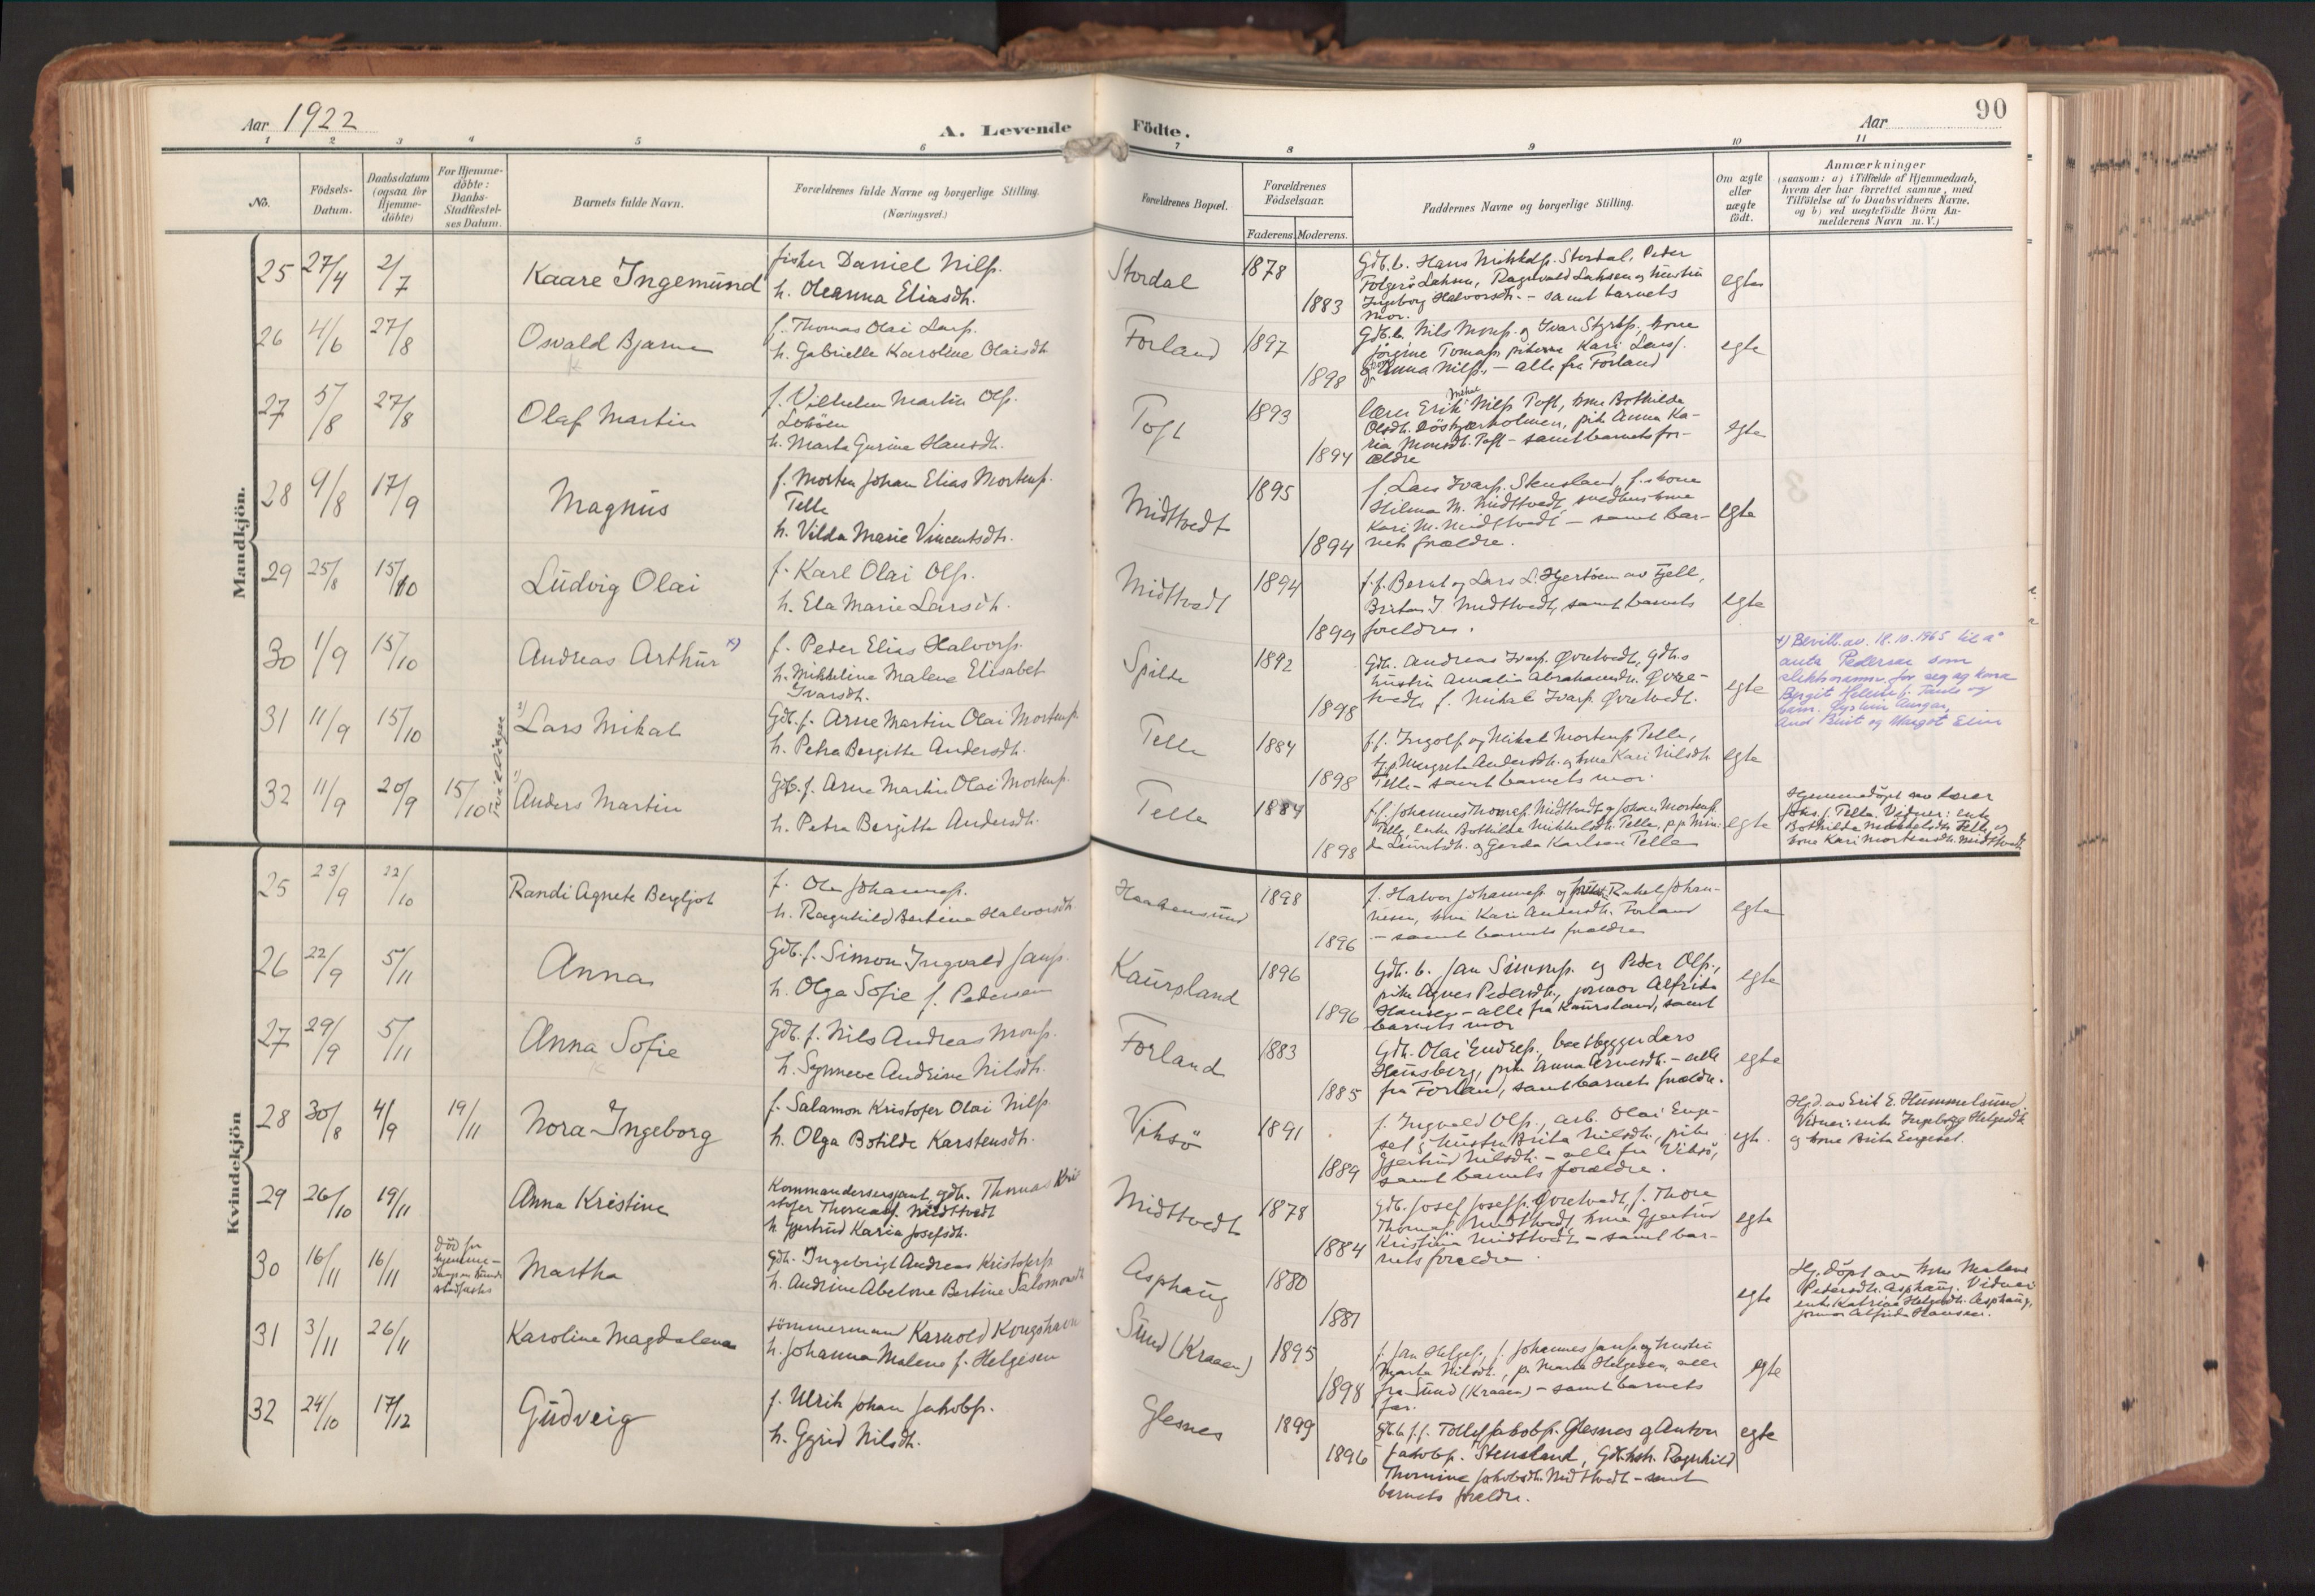 Aar 1922
A. Levende
Födte.
Aar
90
1 2 3 4 5 6 7 8 9 10 11
No.
Födsels-
Datum.
Daabsdatum
(ogsaa for
Hjemme-
döbte)
For Hjemme-
döbte:
Daabs-
Stadfæstel-
ses Datum.
Barnets fulde Navn.
Forældrenes fulde Navne og borgerlige Stilling.
(Næringsvei.)
Forældrenes Bopæl.
Forældrenes
Födselsaar.
Faderens. Moderens.
Faddernes Navne og borgerlige Stilling.
Om ægte
eller
uægte
födt.
Anmærkninger
(saasom: a) i Tilfælde af Hjemmedaab,
hvem der har forrettet samme, med
Tilföielse af to Daabsvidners Navne,
og b) ved uegtefödte Börn An-
melderens Navn m. V.)
Mandkjön.
25 27/4 2/7 Kaare Ingemund
fisker Daniel Nilss.
h. Oleanna Eliasdh.
Stordal 1878 1883
Ingeborg Halvorsdh. - samt barnets
mor.
egte
26 4/6 27/8 Osvald Bjarne
f. Thomas Olai Larss.
h. Gabrielle Karoline Olaisdh.
Forland 1897 1898
Anna Nilss. - alle fra Forland
egte
27 5/8 27/8 Olaf Martin
f. Vilhelm Martin Ols.
h. Marta Gurine Hansdh.
Toft 1893 1894
lærer Erik Mikal Nilss. Toft, kone Bothilda
ria Monsdh. Toft - samt barnets for-
ældre
egte
28 9/8 17/9 Magnus
f. Morten Johan Elias Mortenss.
Telle
h. Vilda Marie Vincentsdh.
Midttvedt 1895 1894
f. Lars Ivarss. Stensland, f. kone
Hilma M. Midttvedt,
Kari M. Midttvedt - samt bar-
nets forældre.
egte
29 25/8 15/10 Ludvig Olai
f. Karl Olai Ols.
h. Ela Marie Larsdh.
Midttvedt 1894 1899
f.f. Bernt og Lars L. Hjertöen av Fjell,
Midttvedt, samt barnets
foreldre.
egte
30 1/9 15/10 Andreas Arthur x)
f. Peder Elias Halvorss.
h. Mikkeline Malene Elisabet
Ivarsdh.
Spilde 1892 1898
Gdb. Andreas Ivarss. Övretvedt, gdb.s
hustru Amalia Abrahamsdh. Övre-
tvedt, f. Mikal Ivarss. Övretvedt.
egte
x) Bevill. av 18.10.1965 til å
anta Pedersen som
slektsnamn for seg og kona
31 11/9 15/10 1) Lars Mikal
Gdb. f. Arne Martin Olai Mortenss.
h. Petra Bergitte Andersdh.
Telle 1884 1898
f.f. Ingolf og Mikal Mortenss. Telle,
Margreta Andersdh. og kone Kari Nilsdh.
Telle - samt barnets mor.
egte
tvillinger
32 11/9 20/9 15/10 1) Anders Martin
Gdb. f. Arne Martin Olai Mortenss.
h. Petra Bergitte Andersdh.
Telle 1884 1898
f.f. Johannes Thomass. Midttvedt og Johan Mortenss.
Telle, enke Bothilde Mikkelsdh. Telle,
og Gerda Karlsen Telle
egte
Hjemmedöpt av lærer
Telle. Vidner: enke
Bothilde Mikkelsdh. Telle og
kone Kari Mortensdh. Midttvedt
Kvindekjön
25 23/9 22/10 Randi Agnete Bergljot
f. Ole Johanness.
h. Ragnhild Bertine Halvorsdh.
Haakensund 1898 1896
f. Halvor Johanness. og Rakel Johan-
nesen, kone Kari Andersdh. Forland
- samt barnets forældre
egte
26 22/9 5/11 Anna
Gdb. f. Simon Ingvald Janss.
h. Olga Sofie f. Pedersen
Kaursland 1896 1896
Gdb. b. Jan Simonss. og Peder Ols.,
pike Agnes Pedersdh., jormor Alfrida
Hansen - alle fra Kaursland, samt
barnets mor
egte
27 29/9 5/11 Anna Sofie
Gdb. f. Nils Andreas Monss.
h. Synneve Andrine Nilsdh.
Forland 1883 1885
Gdb. Olai Endress., baatbygger Lars
Hausberg, pike Anna Arnesdh. - alle
fra Forland, samt barnets forældre.
egte
28 30/8 4/9 19/11 Nora Ingeborg
f. Salamon Kristofer Olai Nilss.
h. Olga Botilde Karstensdh.
Viksö 1891 1889
f. Ingvald Ols., arb. Olai Enge-
set, hustru Brita Nilsdh., pike
Gjertrud Nilsdh. - alle fra Viksö,
samt barnets forældre.
egte
Hjd. av Erik E. Hummelsund
Vidner: enke Ingeborg Helgesdh.
og kone Brita Engeset.
29 26/10 19/11 Anna Kristine
Kommandersersjant, gdb. Thomas Kri
stofer Thomass. Midttvedt
h. Gjertrud Karia Josefsdh.
Midttvedt 1878 1884
Gdb. Josef Josefs. Övretvedt, f. Thore
Thomass. Midttvedt, kone Gjertrud
Kristina Midttvedt - samt bar-
nets foreldre.
egte
30 16/11 16/11
död før
hjemme-
daapen kunde
stadfæstes
Martha
Gdb. Ingebrigt Andreas Kristofers.
h. Andrine Abelone Bertine Salomonsdh.
Asphaug 1880 1881
egte
Hj. döpt av kone Malene
Pedersdh. Asphaug. Vidner:
enke Katrine Helgesdh. Asphaug,
jormor Alfrida Hansen.
31 3/11 26/11 Karoline Magdalena
tömmermand Karnold Kongshavn
h. Johanna Malene f. Helgesen
Sund (Kraaen) 1895 1898
f. Jan Helges., f. Johannes Janss. og hustru
Marta Nilsdh., p. Marta Helgesen, alle
fra Sund (Kraaen) - samt barnets
far.
egte
32 24/10 17/12 Gudveig
f. Ulrik Johan Jakobs.
h. Gyrid Nilsdh.
Glesnes 1899 1896
Tollef Jakobs. Glesnes og Anton
Jakobs. Stensland, Ragnhild
Thomine Jakobsdh. Midttvedt - samt
barnets forældre.
egte